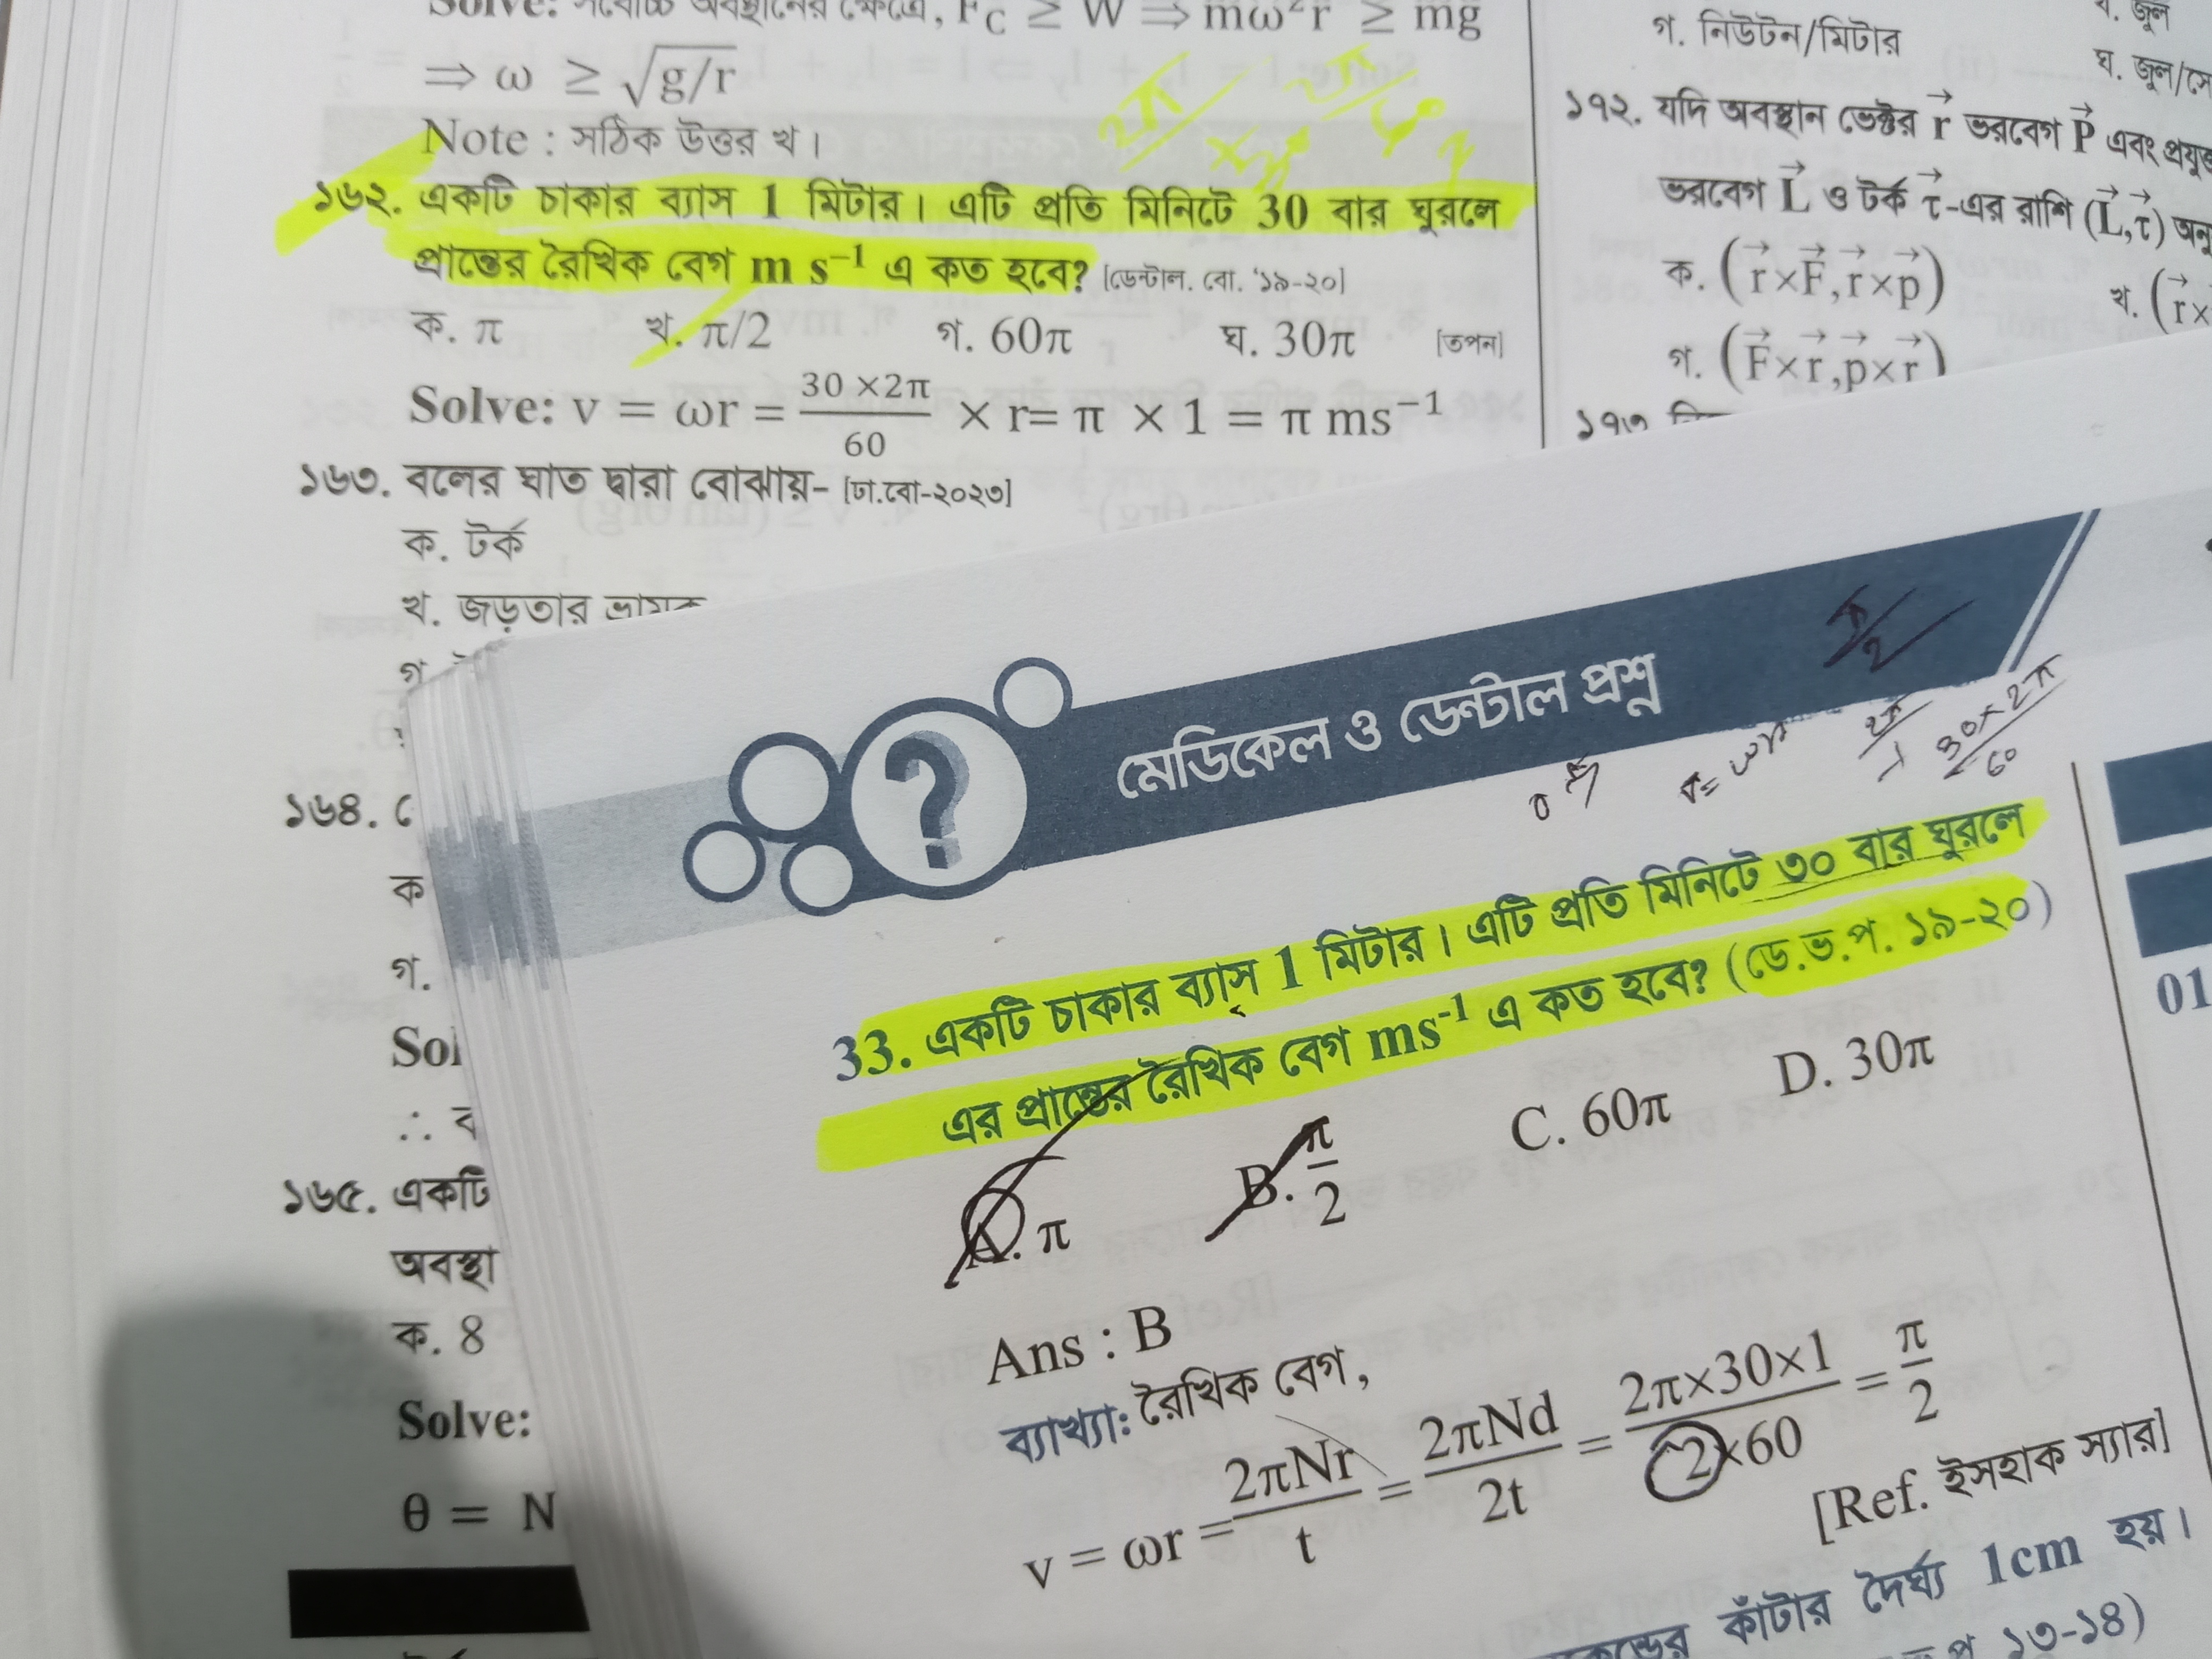 Solve: সর্বোচ্চ অবস্থানের ক্ষেত্রে, F_C ≥ W ⇒ mω²r ≥ mg
⇒ ω ≥ √g/r
Note : সঠিক উত্তর খ।
১৬২. একটি চাকার ব্যাস 1 মিটার। এটি প্রতি মিনিটে 30 বার ঘুরলে
প্রান্তের রৈখিক বেগ m s⁻¹ এ কত হবে? [ডেন্টাল. বো. '১৯-২০]
ক. π খ. π/2 গ. 60π ঘ. 30π [তপন]
Solve: v = ωr = 30 ×2π/60 × r= π × 1 = π ms⁻¹
১৬৩. বলের ঘাত দ্বারা বোঝায়- [ঢা.বো-২০২৩]
ক. টর্ক
খ. জড়তার ভ্রামক
গ.
১৬৪.
ক
গ.
Sol
∴ ব
১৬৫. একটি
অবস্থা
ক. 8
Solve:
θ = N
ঘ. জুল
গ. নিউটন/মিটার
ঘ. জুল/সে
১৭২. যদি অবস্থান ভেক্টর r⃗ ভরবেগ P⃗ এবং প্রযুক্ত
ভরবেগ L⃗ ও টর্ক τ⃗-এর রাশি (L⃗,τ⃗) অনু
ক. (r⃗×F⃗,r⃗×p⃗)
খ. (r⃗×
গ. (F⃗×r⃗,p⃗×r⃗)
১৭৩
মেডিকেল ও ডেন্টাল প্রশ্ন
π/2
v= ωr
2π/1
30×2π/60
33. একটি চাকার ব্যাস 1 মিটার। এটি প্রতি মিনিটে ৩০ বার ঘুরলে
এর প্রান্তের রৈখিক বেগ ms⁻¹ এ কত হবে? (ডে.ভ.প. ১৯-২০)
A. π B. π/2 C. 60π D. 30π
Ans : B
ব্যাখ্যা: রৈখিক বেগ,
v = ωr = 2πNr/t = 2πNd/2t = 2π×30×1/2×60 = π/2
[Ref. ইসহাক স্যার]
কাঁটার দৈর্ঘ্য 1cm হয়।
প ১৩-১৪)
01